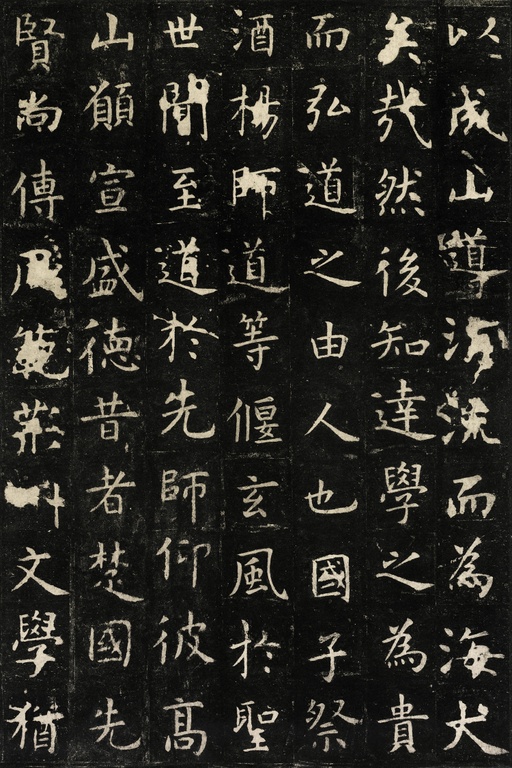 以成山導涓流而為海大
矣哉然後知達學之為貴
而弘道之由人也國子祭
酒楊師道等偃玄風於聖
世聞至道於先師仰彼高
山願宣盛德昔者楚國先
賢尚傳風範荊州文學猶